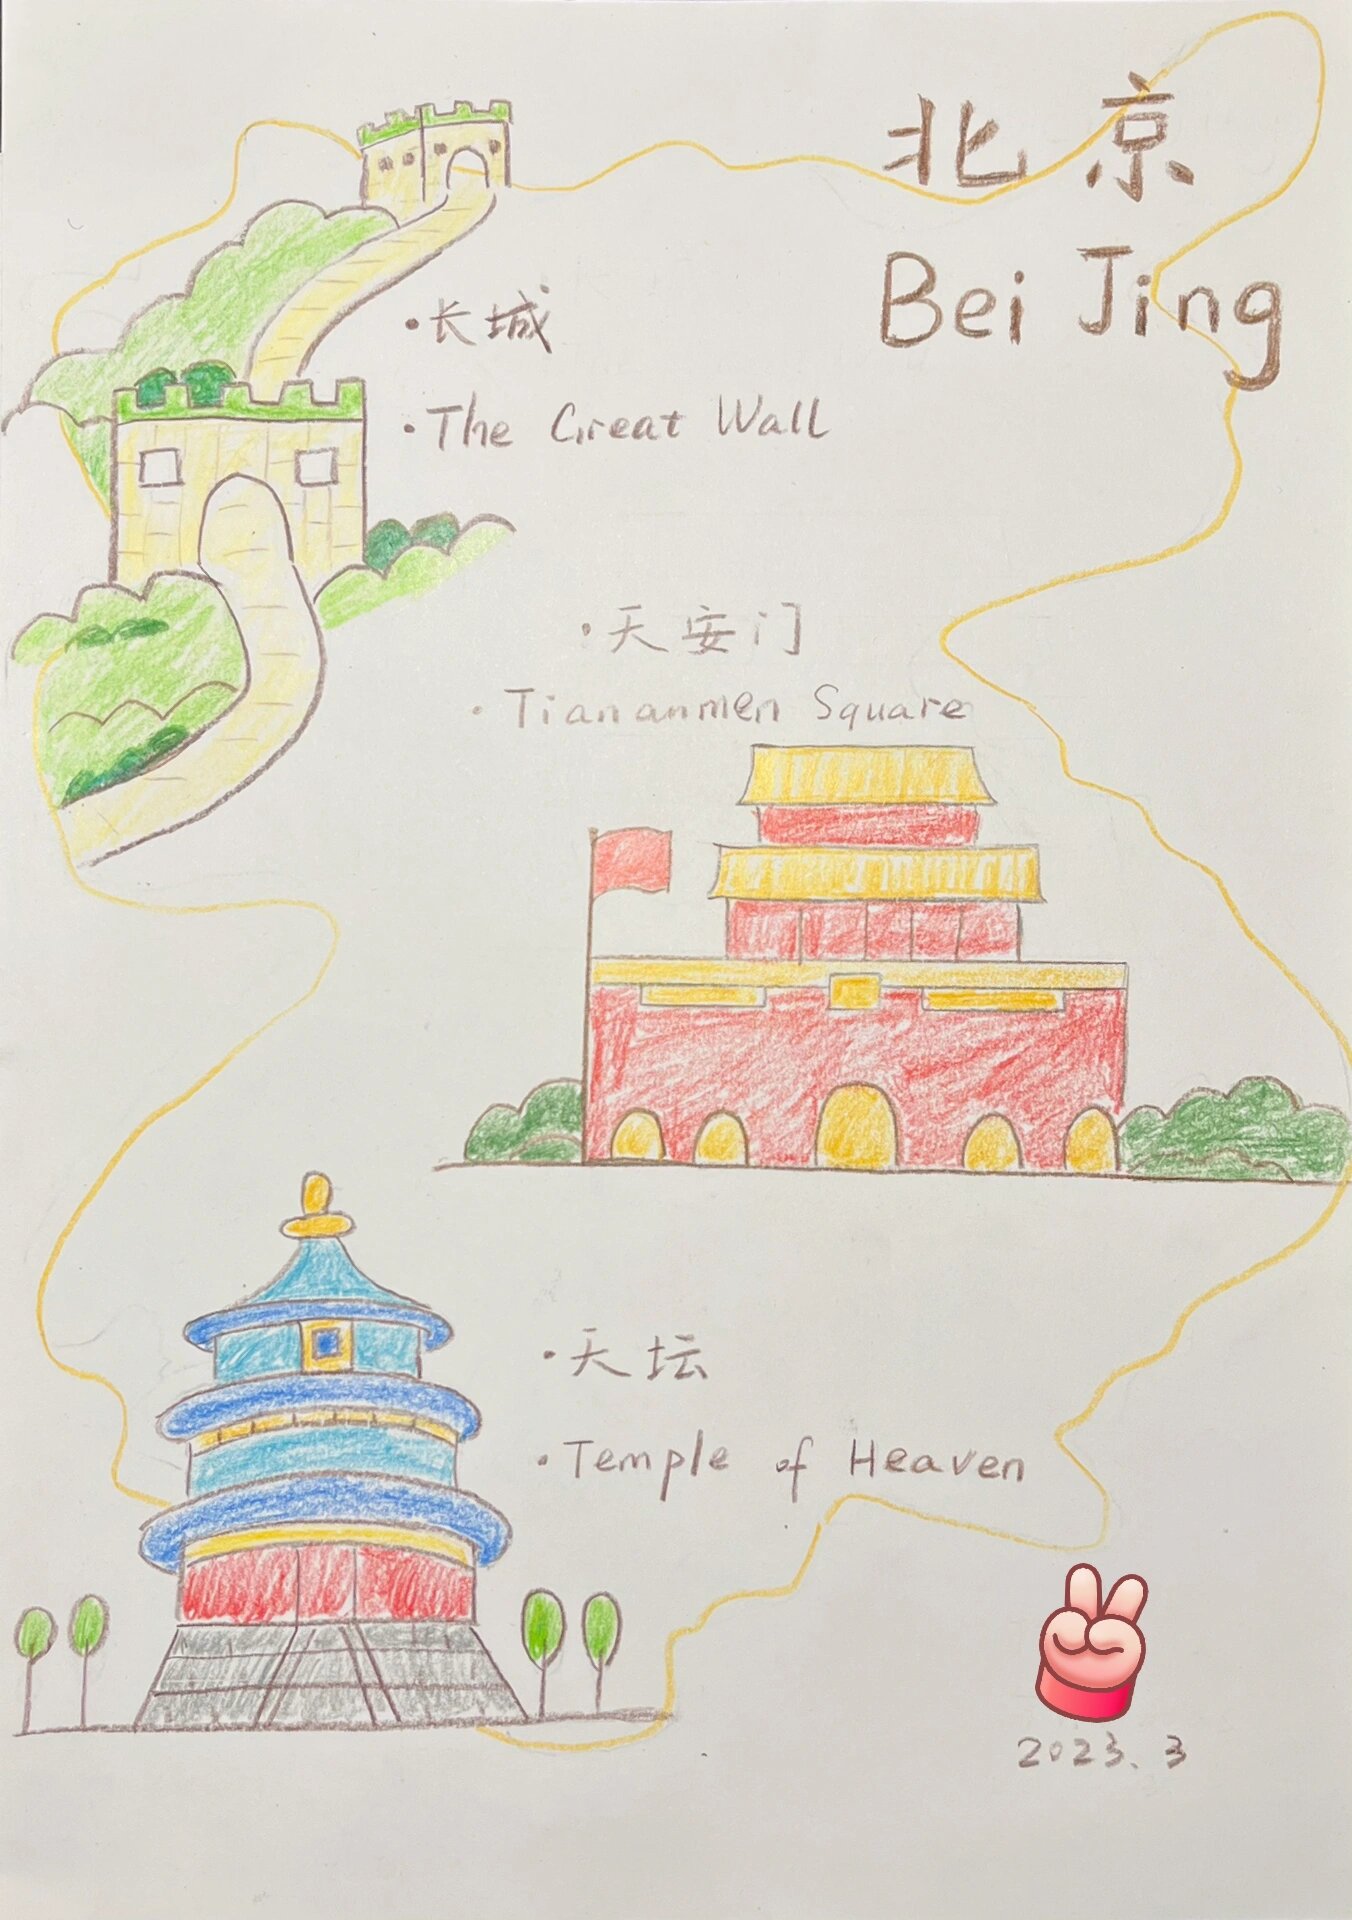 北京
Bei Jing
·长城
·The Great Wall
·天安门
·Tiananmen Square
·天坛
·Temple of Heaven
2023.3